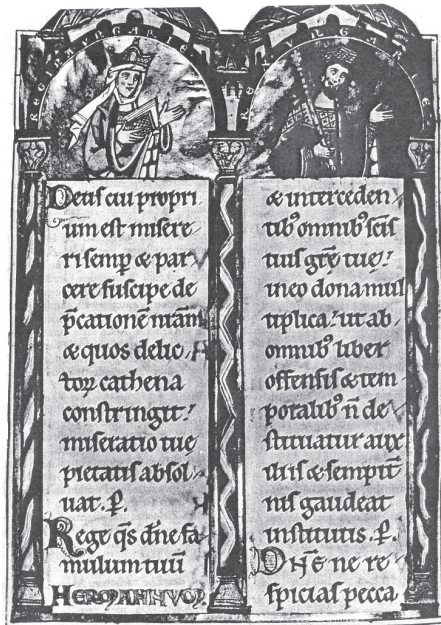 REGINA VNGARIE
Deus cui propri
um est misere
ri semp̲ & par
cere suscipe de
p̄cationē nr̄am
& quos delic
torꝝ cathena
constringit.
miseratio tue
pietatis absol
uat. P̱.
Rege q̄s dn̄e fa
mulum tuū
HERMANNVM.
REX VNGARIE
& interceden
tib᾽ omnib᾽ sc̄is
tuis gr̄ę tuę.
in eo dona mul
tiplica. ut ab
omnib᾽ liber
offensis & tem
poralib᾽ n̄ de
stituatur aux
iliis & sempit̄
nis gaudeat
institutis. P̱.
DN̄E ne re
spicias pecca